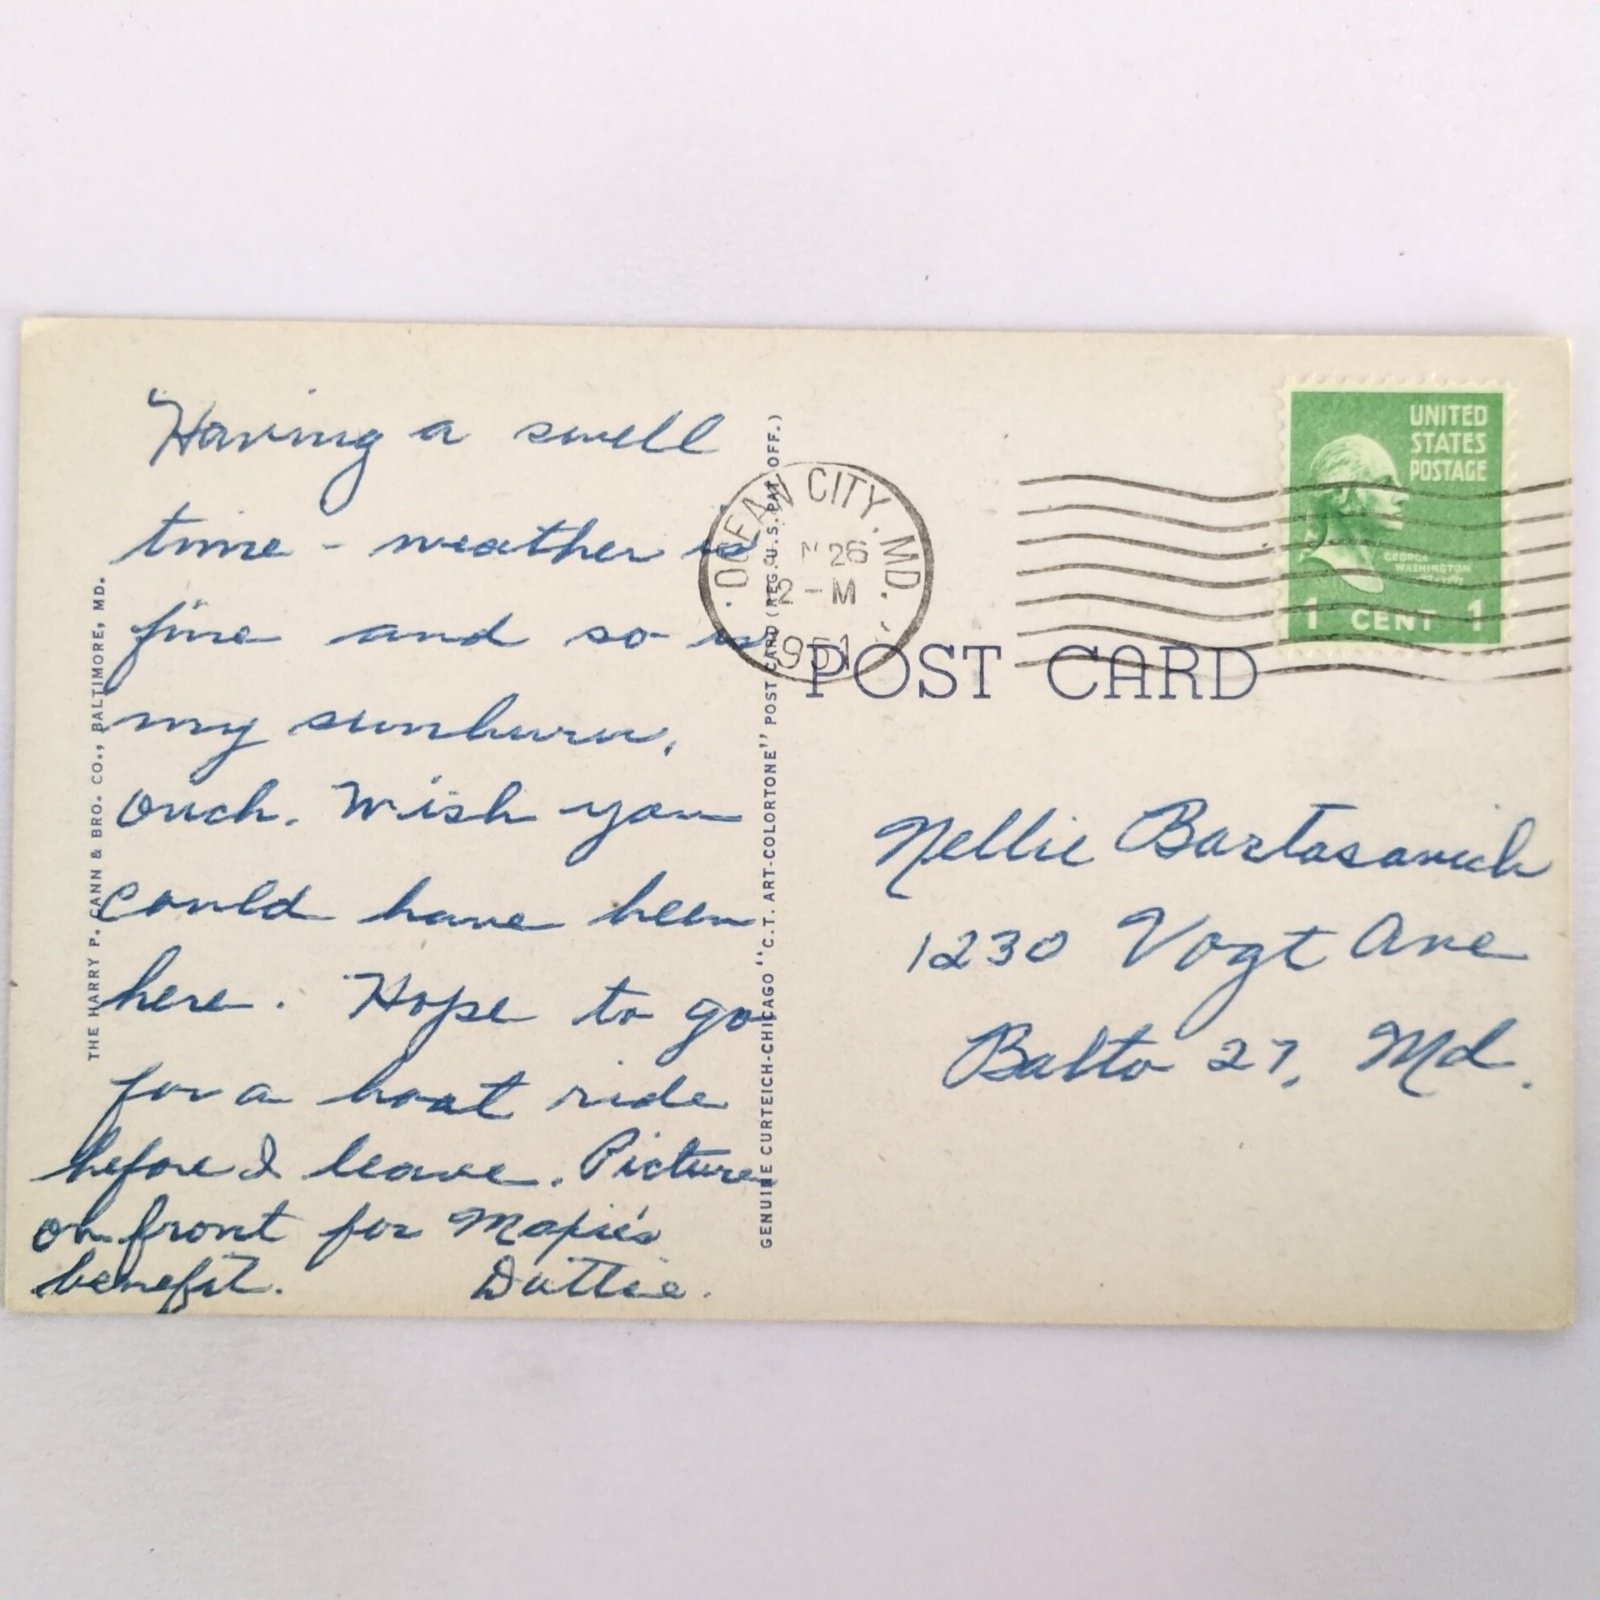 Having a swell
time - weather is
fine and so is
my sunburn,
ouch. Wish you
could have been
here. Hope to go
for a boat ride
before I leave. Picture
on front for
benefit. Dottie.
THE HARRY P. CANN & BRO. CO., BALTIMORE, MD.
GENUINE CURTEICH-CHICAGO "C.T. ART-COLORTONE" POST CARD (REG. U.S. PAT. OFF.)
OCEAN CITY, MD.
26
2 - M
1951
UNITED
STATES
POSTAGE
GEORGE
WASHINGTON
1 CENT 1
POST CARD
Nellie Bartasavich
1230 Vogt Ave
Balto 27, Md.